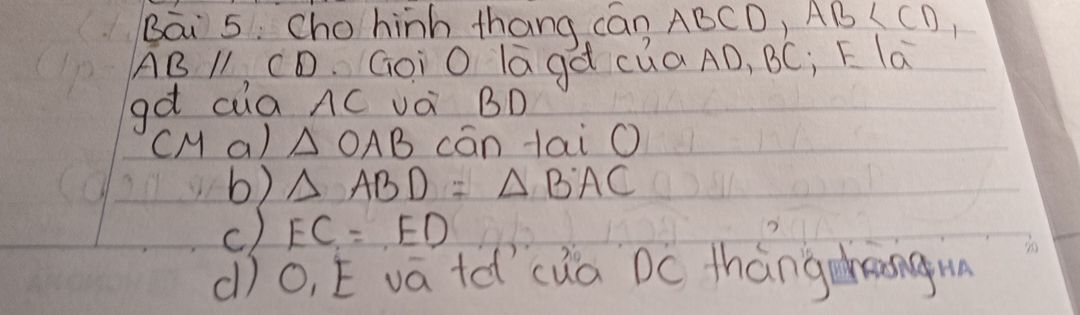 Bài 5: Cho hình thang cân ABCD, AB < CD,
AB // CD. Gọi O là gđ của AD, BC; E là
gđ của AC và BD
CM a) △ OAB cân tại O
b) △ ABD = △ BAC
c) EC = ED
d) O, E và tđ của DC thẳng hàng